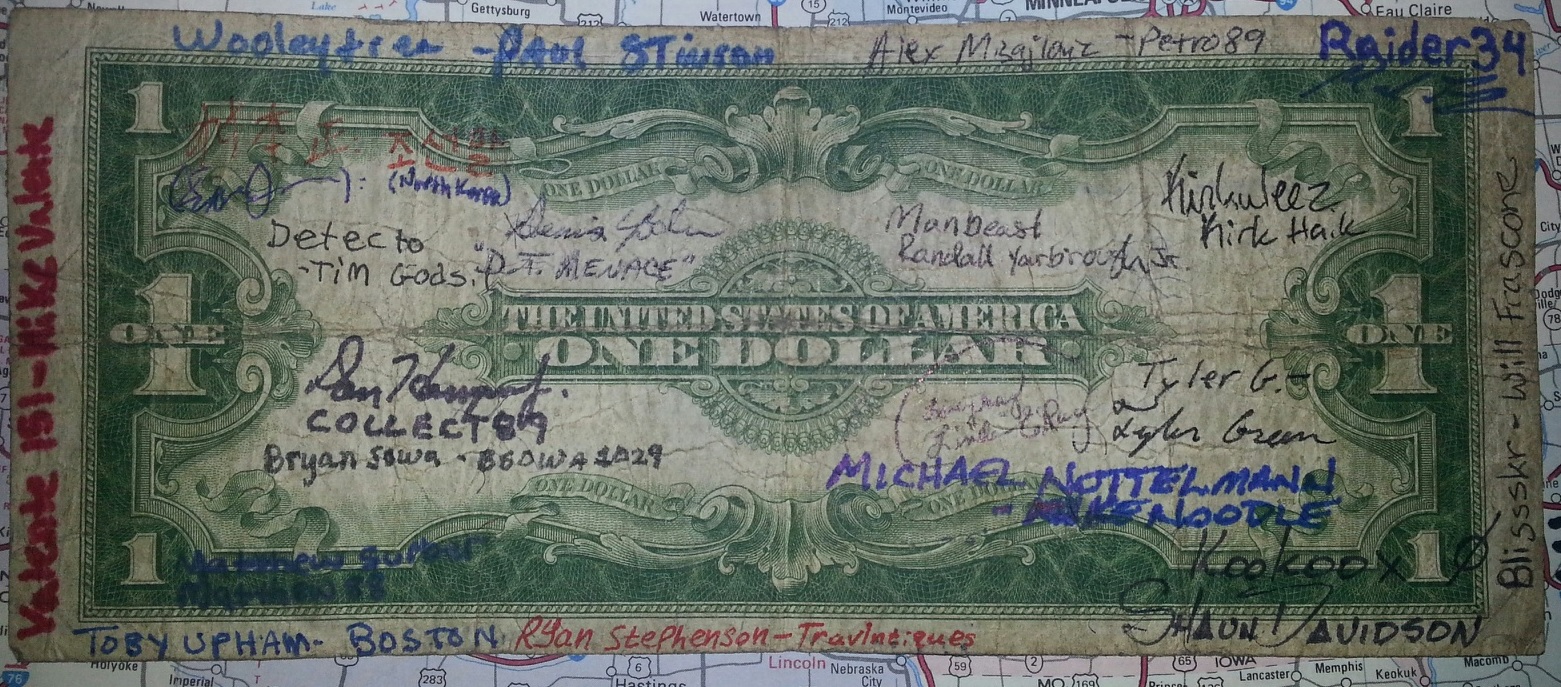 Gettysburg
Watertown
Montevideo
MINNEAPOLIS
Eau Claire
Lake
212
15
212
Wooleytree - Paul Stimson
Alex - Petro89
Raider34
1
1
조선
(North Korea)
ONE DOLLAR
ONE DOLLAR
Kirkuleez
Kirk Hark
Detecto
- Tim Gods.
"D.T. MENACE"
ManBeast
Randall Yarbrough Jr.
Valente 151 - Mike Valente
Blisskr - Will Frascone
1
ONE
1
ONE
THE UNITED STATES OF AMERICA
ONE DOLLAR
COLLECT89
Bryan Sowa - BSOWA1029
Tyler G. -
Tyler Green
MICHAEL NOTTELMANN
- NOODLE
ONE DOLLAR
ONE DOLLAR
1
1
Kookoox
SHAUN DAVIDSON
TOBY UPHAM - BOSTON
Ryan Stephenson - Travintiques
76
Holyoke
Imperial
283
6
Hastings
Lincoln
Nebraska
City
59
2
MO
169
65
IOWA
Lancaster
Memphis
Keokuk
Macomb